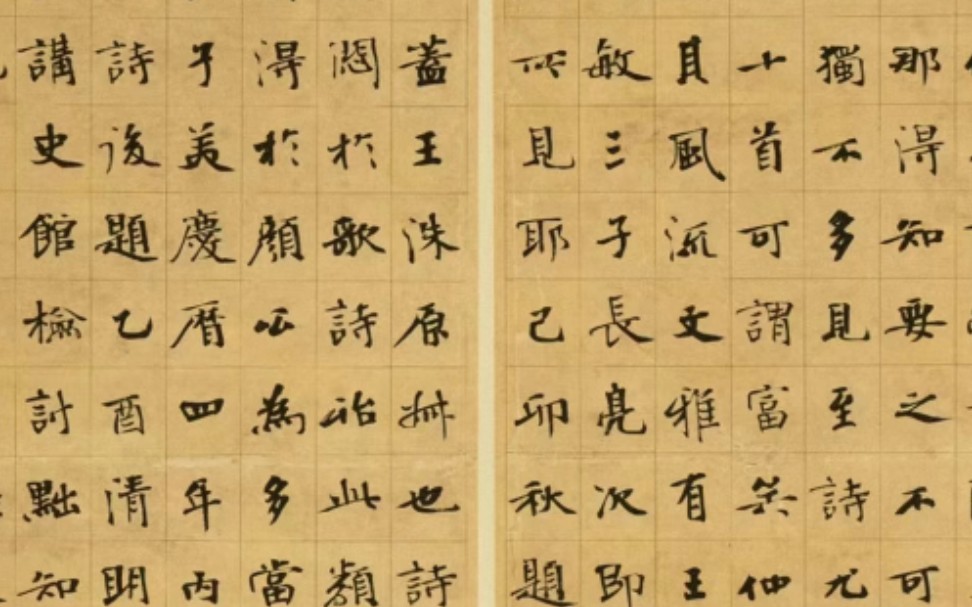 那得知要之不可
獨不多見至詩尤
十首可謂富矣仲
其風流文雅有王
敏三子長亮次即
所見耶己卯秋題
蓋王洙原叔也詩
於歌詩此類
得於顏公為多當
子美慶曆四年丙
詩後題乙酉清明
講史館檢討黜知